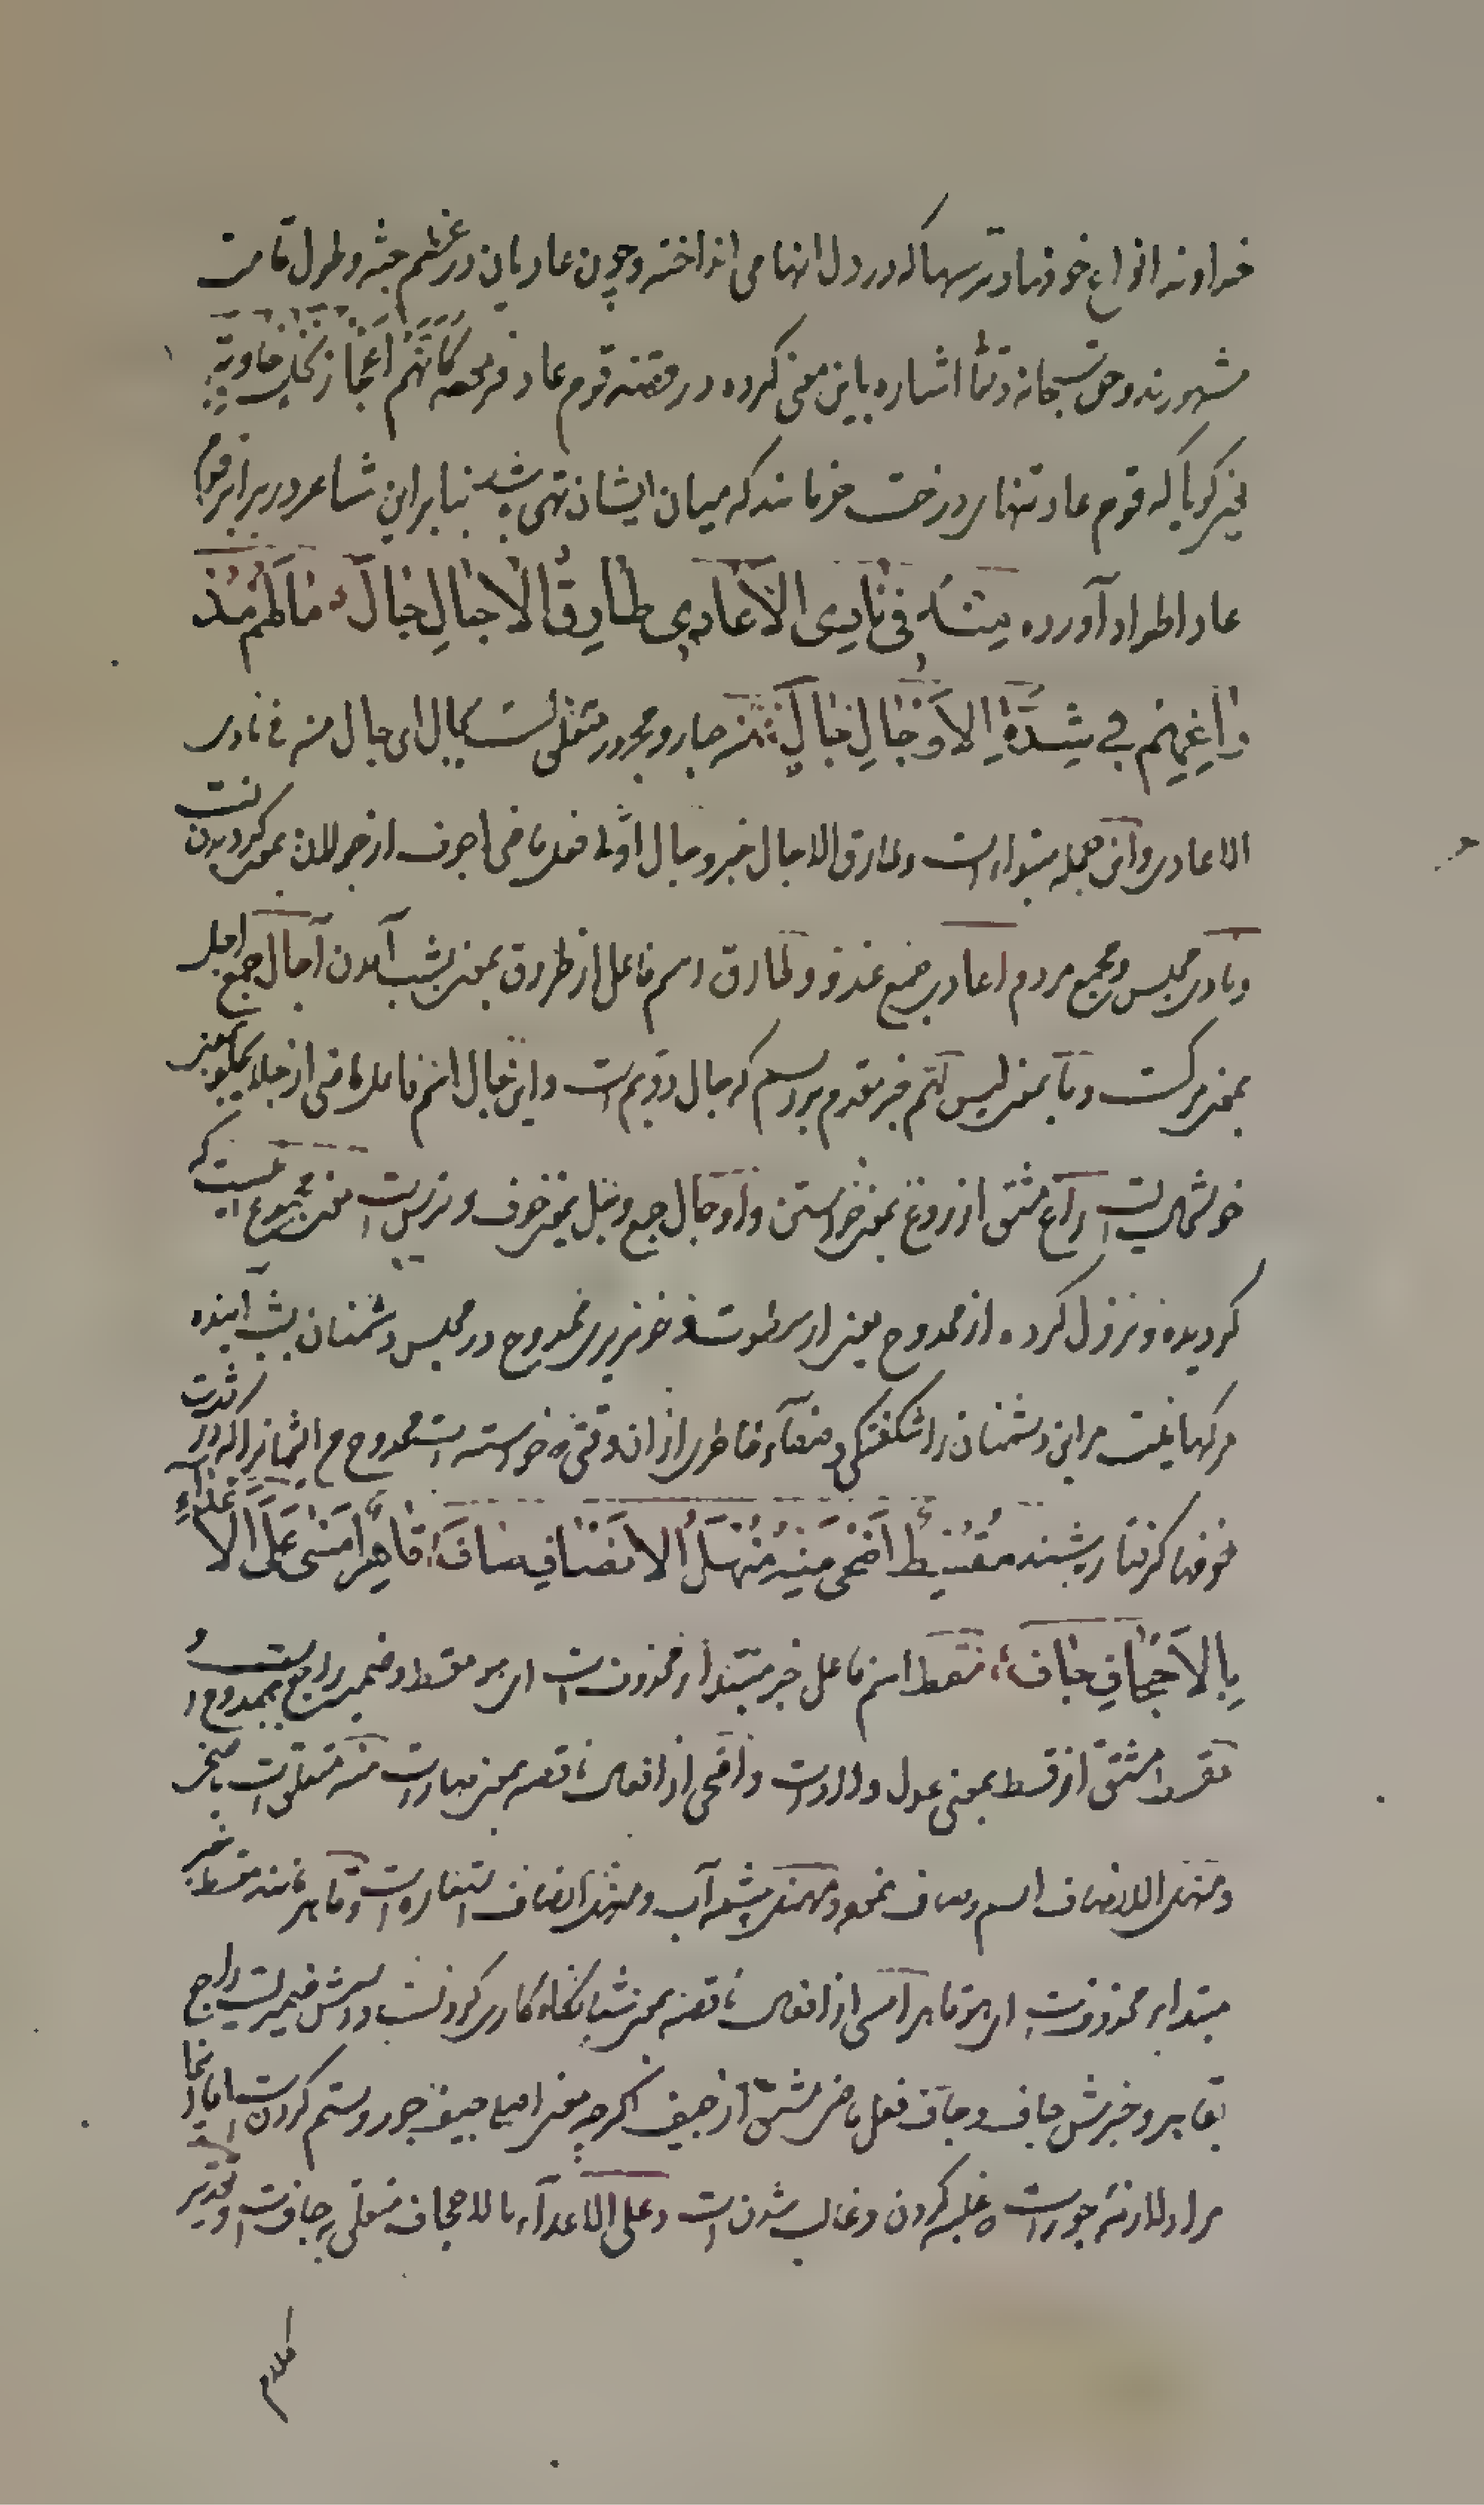 خداوند انواع خوفها و ترسها که در دل انها می انداخته و چون عادیان در عظم جثه و طول قامت
مشهورند و حق سبحانه و تعالی اشاره باین معنی کرده در قصه قوم عاد فرموده کَاَنَّهُم اَعْجَازُ نَخْلٍ خَاوِیَةٍ
یعنی گویا که قوم عاد تنهای درخت خرمایند که میان ایشان تهی باشد بنابراین شاعر در برابر قوم
عاد اطواد آورده مِنْهُ فی نَادِی الاَعَادِی طَارِقُ الآجَالِ جَالَ مَا لَهُم مُذْ
رَاغَهُمْ فی شِدَّةِ الاَوْجَالِ جَالٍ منه جار و مجرور متعلق است بجال ای جال منه فی نادی
الاعادی و این جمله مبتداست و طارق الاجال خبر و جال اول فعل ماضی اجوف از جولان بمعنی گردیدن است
و نادی مجلس و مجمع مردم اعادی جمع عدو و طارق اسم فاعل از طروق بمعنی بشب آمدن آجال جمع اجل
بمعنی مرگست و ما بمعنی لیس لهم خبر مقدم بر اسم که جال دویم است و این جال اسم فاعل ناقص از جلا یجلو بمعنی
خوشحالیست راغ مشتق از روغ بمعنی خواستن و اوجال جمع وجل بمعنی خوف و ترس است معنی مجموع اینست که
گردیده و نزول کرده از ممدوح یعنی از سطوت و خونریزی ممدوح در مجلس دشمنان بشب آینده
مرگها نیست مر این دشمنان را شکفتگی و صفاء خاطری از آن وقتی که خواسته است ممدوح مر ایشانرا که در شدت
خوفها گرفتار باشند مُقْسِطٌ اَضْحٰی مِنْهُ مَنْهَلُ الاِنْصَافِ صَافٍ قَاهِرٌ اَمْسٰی عَلَی الاَعْدَاءِ
بِالاِجْحَافِ جَافَ مقسط اسم فاعل خبر مبتداء محذوف است ای هو مقسط و ضمیر راجع بممدوح است و
مقسط مشتق از قسط بمعنی عدل و داد است و اضحی از افعال ناقصه بمعنی صار است منه متعلق است باضحی
و منهل الانصاف اسم و صاف خبر و منهل چشمه آب و منهل انصاف استعاره است و قاهر مانند مقسط خبر
مبتداء محذوفست ای هو قاهر امسی از افعال ناقصه بمعنی شبانگاه کاری کردنست و اسمش ضمیریست راجع
بقاهر و خبرش جاف و جاف فعل ماضی مشتق از حیف اگرچه معنی اصلی حیف جور و ستم کردن است اما اینجا
مراد لازمه جور است که غلبه کردن و غالب شدن است و علی الاعداء بالاجحاف متعلق بجافست و تقدیر
کلام